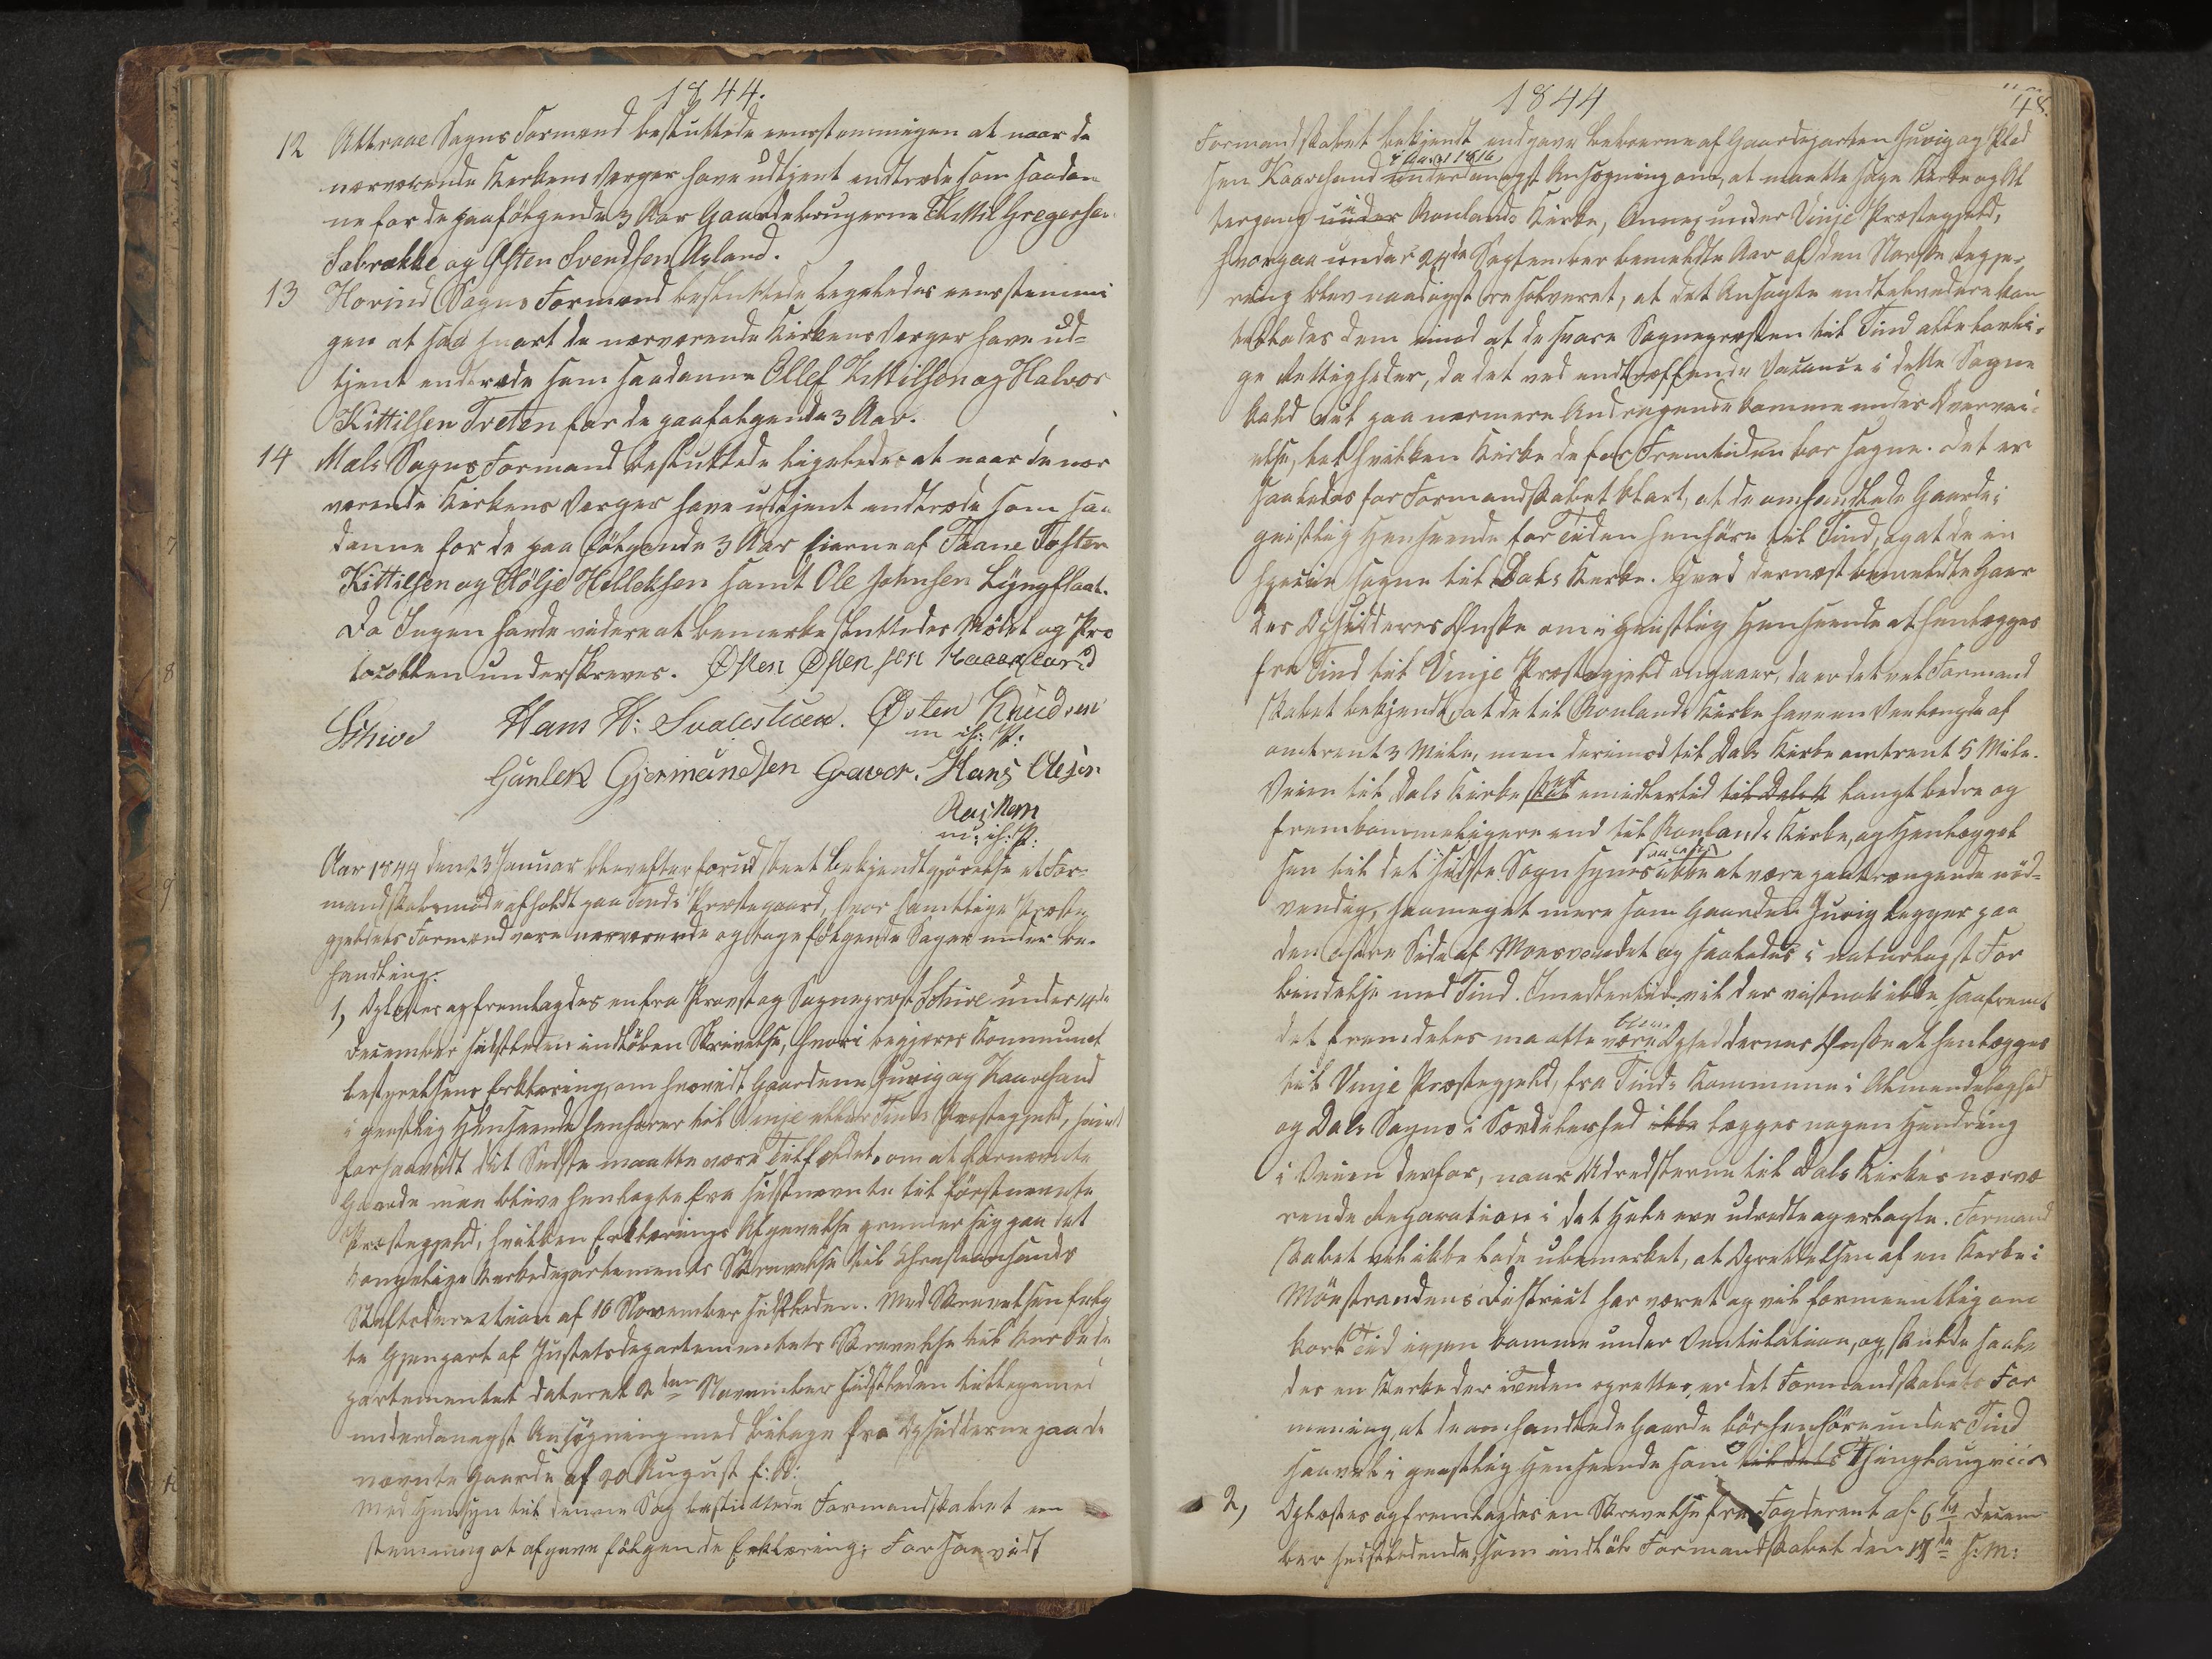 1844.
12 Attraae Sogns Formænd besluttede eenstemmigen at naar de
nærværende Kirkens Værger have udtjent indtræde som saadan
ne for de paafölgende 3 Aar Gaardebrugerne Kittil Gregersen
Sabrække og Østen Svendsen Øyland.
13 Hovind Sogns Formænd besluttede ligeledes eensstemmi
gen at saa snart de nærværende Kirkens Værger have ud=
tjent indtræde som saadanne Ollef Kittilsen og Halvor
Kittilsen Treten for de paafølgende 3 Aar.
14 Mæls Sogns Formænd besluttede ligeledes at naar de nær
værende Kirkens Værger have udtjent indtræde som saa
danne for de paa fölgende 3 Aar Eierne af Faane Tosten
Kittilsen og Hölje Helleksen samt Ole Johnsen Lÿngflaat.
Da Ingen havde videre at bemærke sluttedes Mödet og Pro
tocollen underskreves. Østen Østensen
Schive Hans H: Svalestuen. Østen Knudsen
m: ih: P:
Gunlek Gjermundsen Graver. Hans Olesen
m: ih: P:
Aar 1844 den 23 Januar blev efter forud skeet Bekjendtgjörelse et For=
mandskabsmöde afholdt paa Tinds Præstegaard, hvor samtlige Præste
gjeldets Formænd vare nærværende og toge fölgende Sager under be=
handling:
1, Oplæstes og fremlagdes en fra Provst og Sognepræst Schive under 14de
December sidstleden indlöben Skrivelse, hvori begjæres Kommunal
bestyrelsens Erklæring, om hvorvidt Gaardene Juvig og Kaarsland
i geistlig Henseende henhører til Vinje eller Tinds Præstegjeld, samt
forsaavidt det Sidste maatte være Tilfældet, om at fornævnte
Gaarde maa blive henlagte fra sidstnævnte til förstnævnte
Præstegjeld, hvilken Erklærings Afgivelse grunder sig paa det
kongelige Kirkedepartements Skrivelse til Christiansands
Stiftsdirection af 16 November sidstleden. Med Skrivelsen fulg
te Gjenpart af Justitsdepartementets Skrivelse til Kirkede
partementet dateret 2den November sidstleden tilligemed
underdanigst Ansögning med Bilage fra Opsidderne paa de
nævnte Gaarde af 20 August f: A:
Med Hensyn til denne Sag besluttede Formandskabet een
stemmigt at afgive fölgende Erklæring: For saa vidt
1844
48.
Formandskabet bekjendt indgave Beboerne af Gaardeparten Juvig og Plad
i Aaret 1816
sen Kaarsland underdanigst Ansøgning om, at maatte søge Kirke og Al
tergang under Rowlands Kirke, Annex under Vinje Præstegjeld,
hvorpaa under 24de September bemeldte Aar af den Norske Regje=
ring blev naadigst resolveret, at det Ansøgte indtilvidere kan
tillades dem imod at de svare Sognepræsten til Tind alle lovli=
ge Rettigheder, da det ved indtræffende Vacance i dette Sogne
kald vil paa nærmere Andragende komme under Overvei=
else, til hvilken Kirke de for Fremtiden bør søgne. Det er
saaledes for Formandskabet klart, at de omhandlede Gaarde i
geistlig Henseende for Tiden henhöre til Tind, og at de in
specie søgne til Dals Kirke. Hvad dernæst bemeldte Gaar
des Opsidderes Ønske om i geistlig Henseende at henlægges
fra Tind til Vinje Præstegjeld angaaer, da er det vel Formand
skabet bekjendt, at de til Rowlands Kirke have en Veilængde af
omtrent 3 Mile, men derimod til Dals Kirke omtrent 5 Mile.
Veien til Dals Kirke skal imidlertid til Dals K langt bedre og
fremkommeligere end til Rowlands Kirke, og Henlæggel
saaledes
sen til det sidste Sogn synes ikke at være paatrængende nöd=
vendig, saameget mere som Gaarden Juvig ligger paa
den østre Side af Moesvandet og saaledes i naturligst For
bindelse med Tind. Imidlertid vil der vistnok ikke, saafremt
blive
det fremdeles maatte være Opsiddernes Ønske at henlægges
til Vinje Præstegjeld, fra Tinds Kommune i Almindelighed
og Dals Sogns i Særdeleshed ikke lægges nogen Hindring
i Veien derfor, naar Udredslerne til Dals Kirkes nærvæ
rende Reparation i det Hele ere udredte og erlagte. Formand
skabet vil ikke lade ubemærket, at Oprettelsen af en Kirke i
Möestrandens District har været og vil formeentlig om
kort Tid igjen komme under Ventilation, og skulde saale
des en Kirke der i Tiden oprettes, er det Formandskabets For
mening, at de omhandlede Gaarde bör henhöre under Tind
saavel i geistlig Henseende som til dets Thinglaugviis
2, Oplæstes og fremlagdes en Skrivelse fra Fogderiet af 6te Decem
ber sidstledende, som indlöb Formandskabet den 17de s: M: